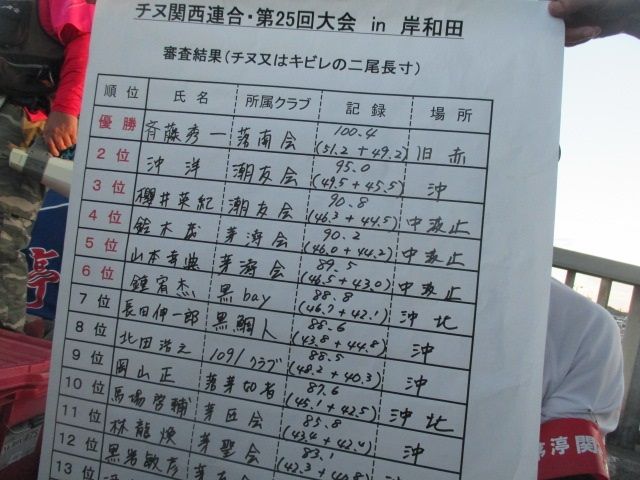 チヌ関西連合・第25回大会 in 岸和田
審査結果(チヌ又はキビレの二尾長寸)
順位 氏名 所属クラブ 記録 場所
優勝 斉藤秀一 落南会 100.4 (51.2+49.2) 旧赤
2位 沖洋 潮友会 95.0 (49.5+45.5) 沖
3位 櫻井英紀 潮友会 90.8 (46.3+44.5) 中波止
4位 鈴木 茅渟会 90.2 (46.0+44.2) 中波止
5位 山本 茅渟会 89.5 (46.5+43.0) 中波止
6位 鍾 杰 黒bay 88.8 (46.7+42.1) 沖北
7位 長田伸一郎 黒鯛人 88.6 (43.8+44.8) 沖
8位 北田浩之 1091クラブ 88.5 (48.2+40.3) 沖
9位 岡山正 落茅 者 87.6 (45.1+42.5) 沖北
10位 馬場啓輔 茅 会 85.8 (43.4+42.4) 沖
11位 林龍煥 茅聖会 83.1
12位 黒岩敏彦 茅
13位
亭
渟関